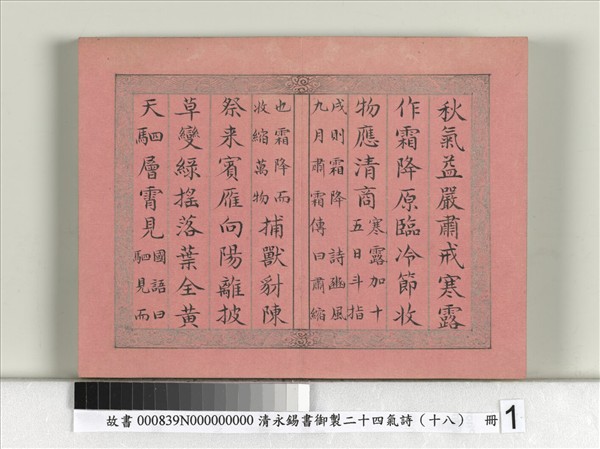 秋氣益嚴肅戒寒露
作霜降原臨冷節收
物應清商寒露加十
五日斗指
戌則霜降詩豳風
九月肅霜傳曰肅縮
也霜降而
收縮萬物捕獸豺陳
祭来賓雁向陽離披
草變綠搖落葉全黃
天駟層霄見國語曰
駟見而
故書 000839N000000000 清永錫書御製二十四氣詩（十八） 冊 1